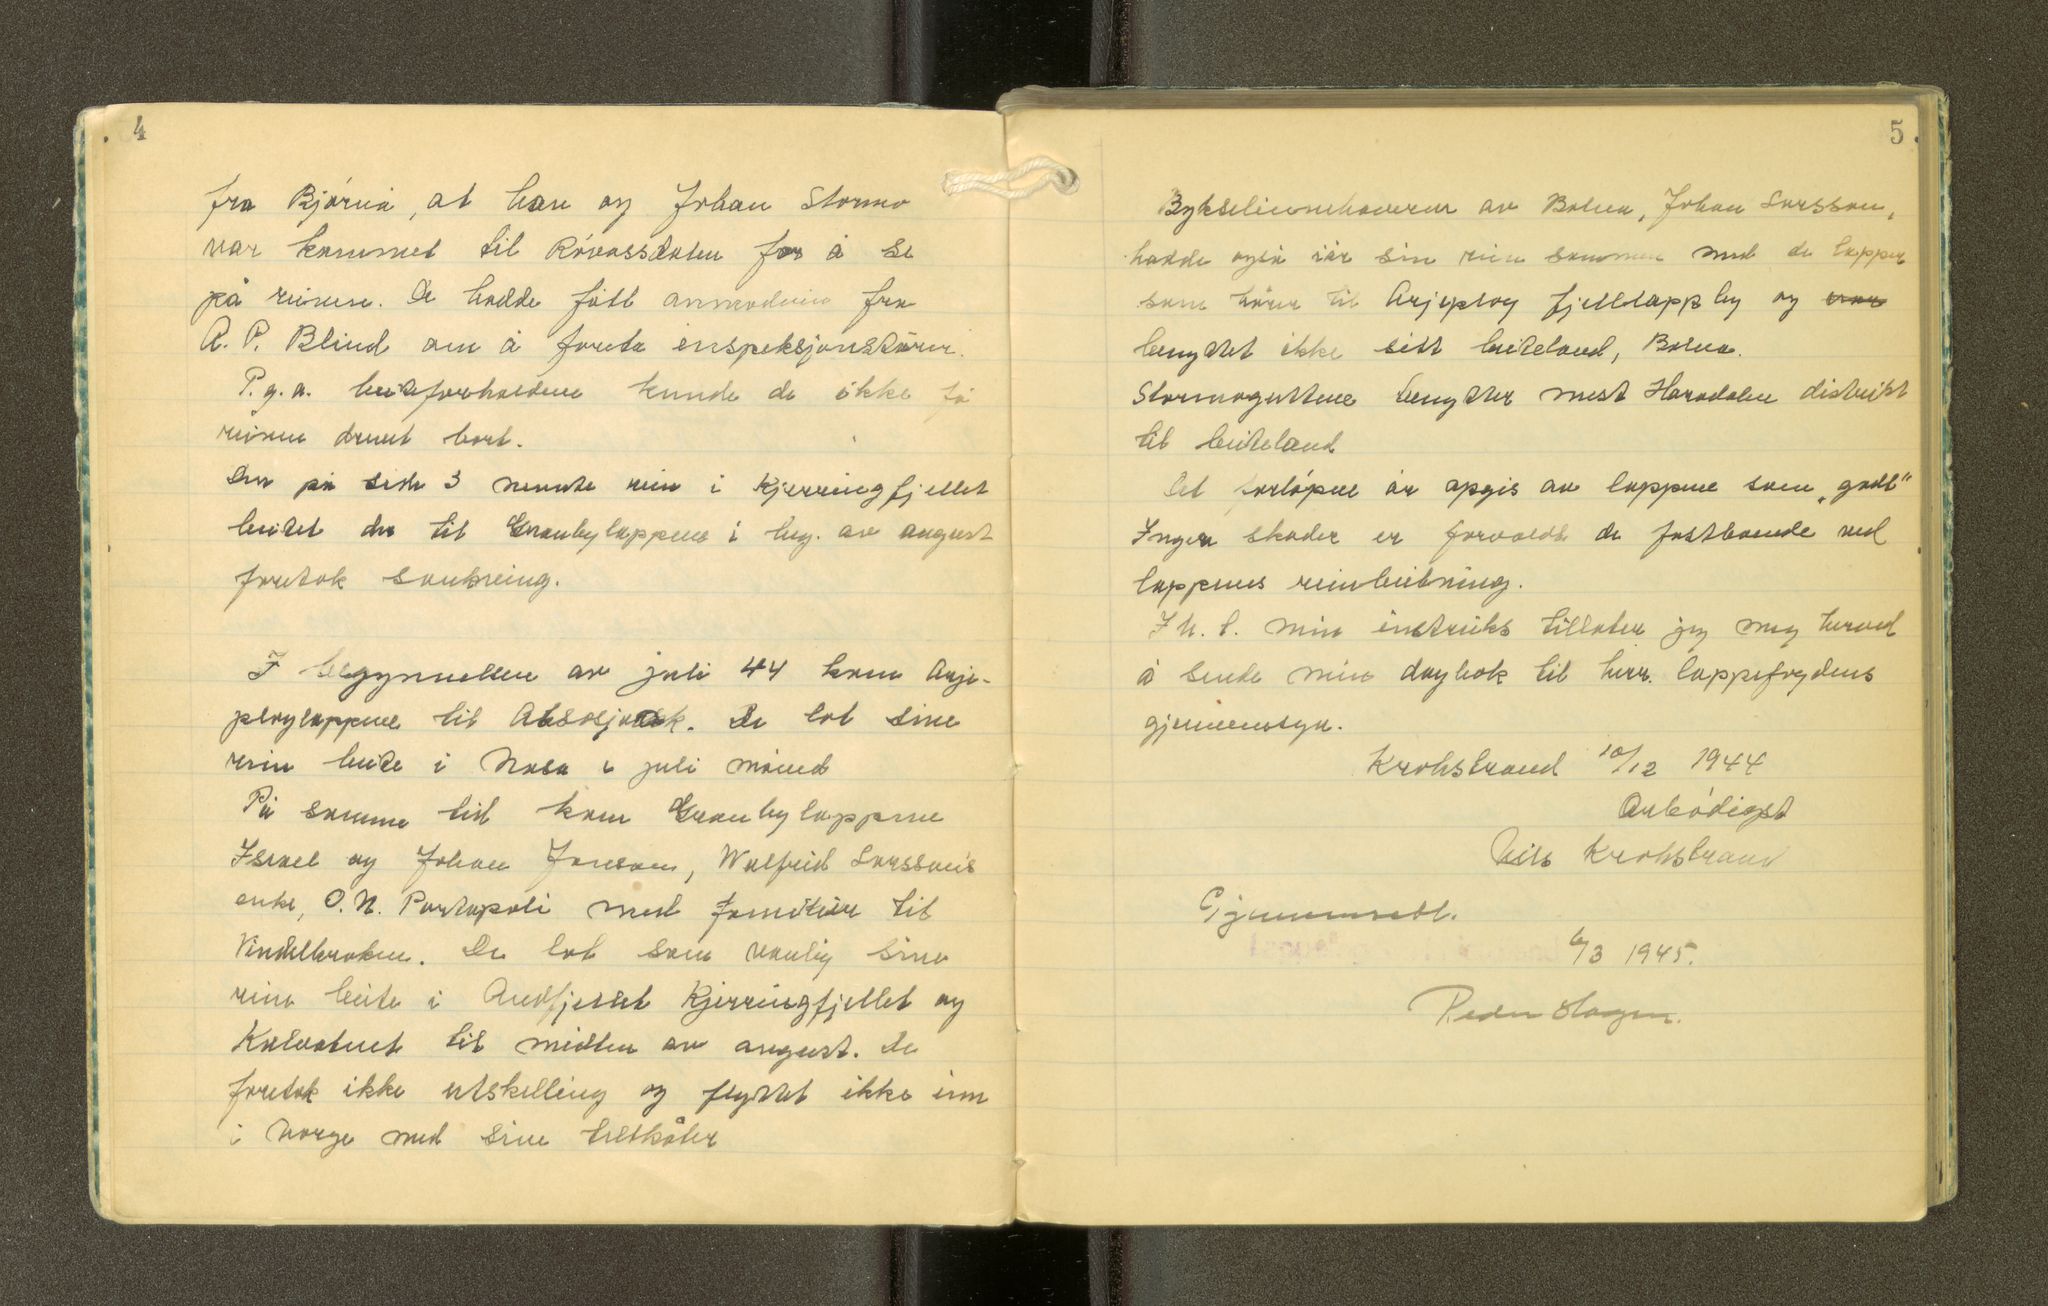 4
fra Bjørnå, at han og Johan Stormo
var kommet til Røvassdalen for å se
på reinene. De hadde fått anmodning fra
A. P. Blind om å foreta inspeksjonstører.
P.g.a. beiteforholdene kunde de ikke få
reinen drevet bort.
Den på side 3 nevnte rein i Kjerringfjellet
beitet der til Granbylappene i beg. av august
foretok sankning.
I begynnelsen av juli 44 kom Arje-
ploglappene til De lot sine
rein beite i Nasa i juli måned
På samme tid kom Granbylappene
Israel og Johan Jonsson, Walfrid Larssons
enke, O. N. Partapoli med familier til
Vindelkroken. De lot som vanlig sine
rein beite i Andfjellet Kjerringfjellet og
Kalvatnet til midten av august. De
foretok ikke utskilling og flyttet ikke inn
i Norge med sine teltkåter
5
Bykselinnehaveren av Bolna, Johan Larsson,
hadde også iår sin rein sammen med de lapper
som hører til Arjeplog fjellappby og var
benyttet ikke sitt beiteland, Bolna.
Stormoguttene benytter mest Harodalen distrikt
til beiteland
Det forløpne år opgis av lappene som „godt“
Ingen skader er forvoldt de fastboende ved
lappenes reinbeitning.
I h. t. min instruks tillater jeg meg herved
å sende min dagbok til herr. lappefogdens
gjennemsyn.
Krokstrand 10/12 1944
Ærbødigst
Nils Krokstrand
Gjennemsett.
6/3 1945.
Peder Hagen.